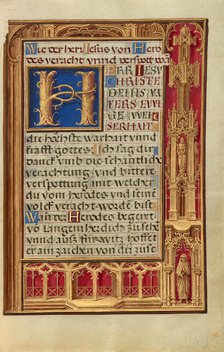 Wie der herr Jesus von Hero
des veracht vnnd verspott wa
HERR IESV
CHRISTE
DEINS VA
TERS EWI
GE WEIS
ERHAIT
die höchst warhait vnnd
krafft gottes: Ich sag dir
danck vmb die schantliche
verachtung vnnd bittere
verspottung mit welcher
du vom herodes vnnd seinē
volck veracht worde bist
Wann: Herodes begeret
vō langem her dich zusehē
vnnd auss furwitz hoffet
er ain zaichen von dir zuse